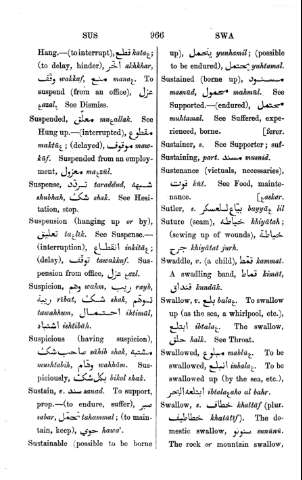 SUS 966 SWA
Hang.—(to interrupt), قطع kataع;
(to delay, hinder), أخر akhkhar,
وقف wakkaf, منع manaع. To
suspend (from an office), عزل
عazal. See Dismiss.
Suspended, معلق muعallak. See
Hung up.—(interrupted), مقطوع
maktūع; (delayed), موقوف maw-
kūf. Suspended from an employ-
ment, معزول maعzūl.
Suspense, تردد taraddud, شبهة
shubhah, شك shak. See Hesi-
tation, stop.
Suspension (hanging up or by),
تعليق taعlīk. See Suspense.—
(interruption), انقطاع inkitāع;
(delay), توقف tawakkuf. Sus-
pension from office, عزل عezl.
Suspicion, وهم wahm, ريب rayb,
ريبة rībat, شك shak, توهم
tawahhum, احتمال ihtimāl,
اشتباه ishtibāh.
Suspicious (having suspicion),
صاحب شك sāhib shak, مشتبه
mushtabih, وهام wahhām. Sus-
piciously, بكل شك bikol shak.
Sustain, s. سند sanad. To support,
prop.—(to endure, suffer), صبر
sabar, تحمل tahammal; (to main-
tain, keep), حوى hawa'.
Sustainable (possible to be borne
up), ينحمل yunhamil; (possible
to be endured), يحتمل yuhtamal.
Sustained (borne up), مسنود
masnūd, محمول mahmūl. See
Supported.—(endured), محتمل
muhtamal. See Suffered, expe-
rienced, borne. [ferer.
Sustainer, s. See Supporter; suf-
Sustaining, part. مسند musnid.
Sustenance (victuals, necessaries),
قوت kūt. See Food, mainte-
nance. [عaskar.
Sutler, s. بياع للعسكر bayyāع lil
Suture (seam), خياطة khiyātah;
(sewing up of wounds), خياطة
جرح khiyātit jurh.
Swaddle, v. (a child), قمط kammat.
A swaddling band, قماط kimāt,
قنداق kundāk.
Swallow, v. بلع balaع. To swallow
up (as the sea, a whirlpool, etc.),
ابتلع ibtalaع. The swallow,
حلق halk. See Throat.
Swallowed, مبلوع mablūع. To be
swallowed, انبلع inbalaع. To be
swallowed up (by the sea, etc.),
ابتلعه البحر ibtalaعaho al bahr.
Swallow, s. خطاف khattāf (plur.
خطاطيف khatātīf). The do-
mestic swallow, سنونو sunūnū.
The rock or mountain swallow,